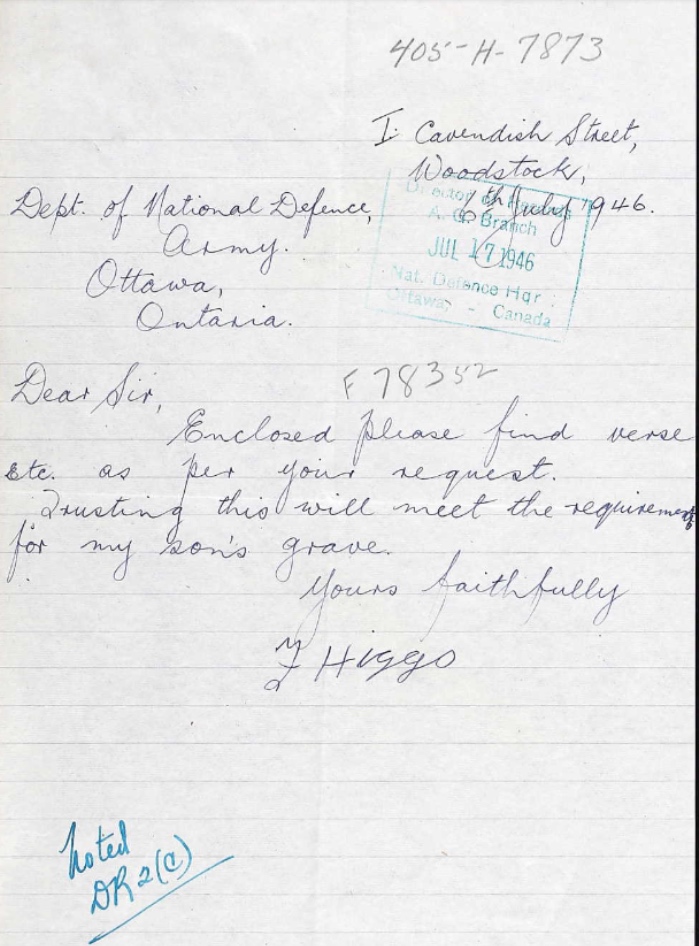 405-H-7873
I. Cavendish Street,
Woodstock,
th July 1946.
Dept. of National Defence,
Army.
Ottawa,
Ontario.
Director of Records
A. G. Branch
JUL 17 1946
Nat. Defence Hqr
Ottawa, - Canada
Dear Sir,
F 78352
Enclosed please find verse
etc. as per your request.
Trusting this will meet the requirements
for my son's grave.
Yours faithfully
F Higgo
Noted
DR2(C)